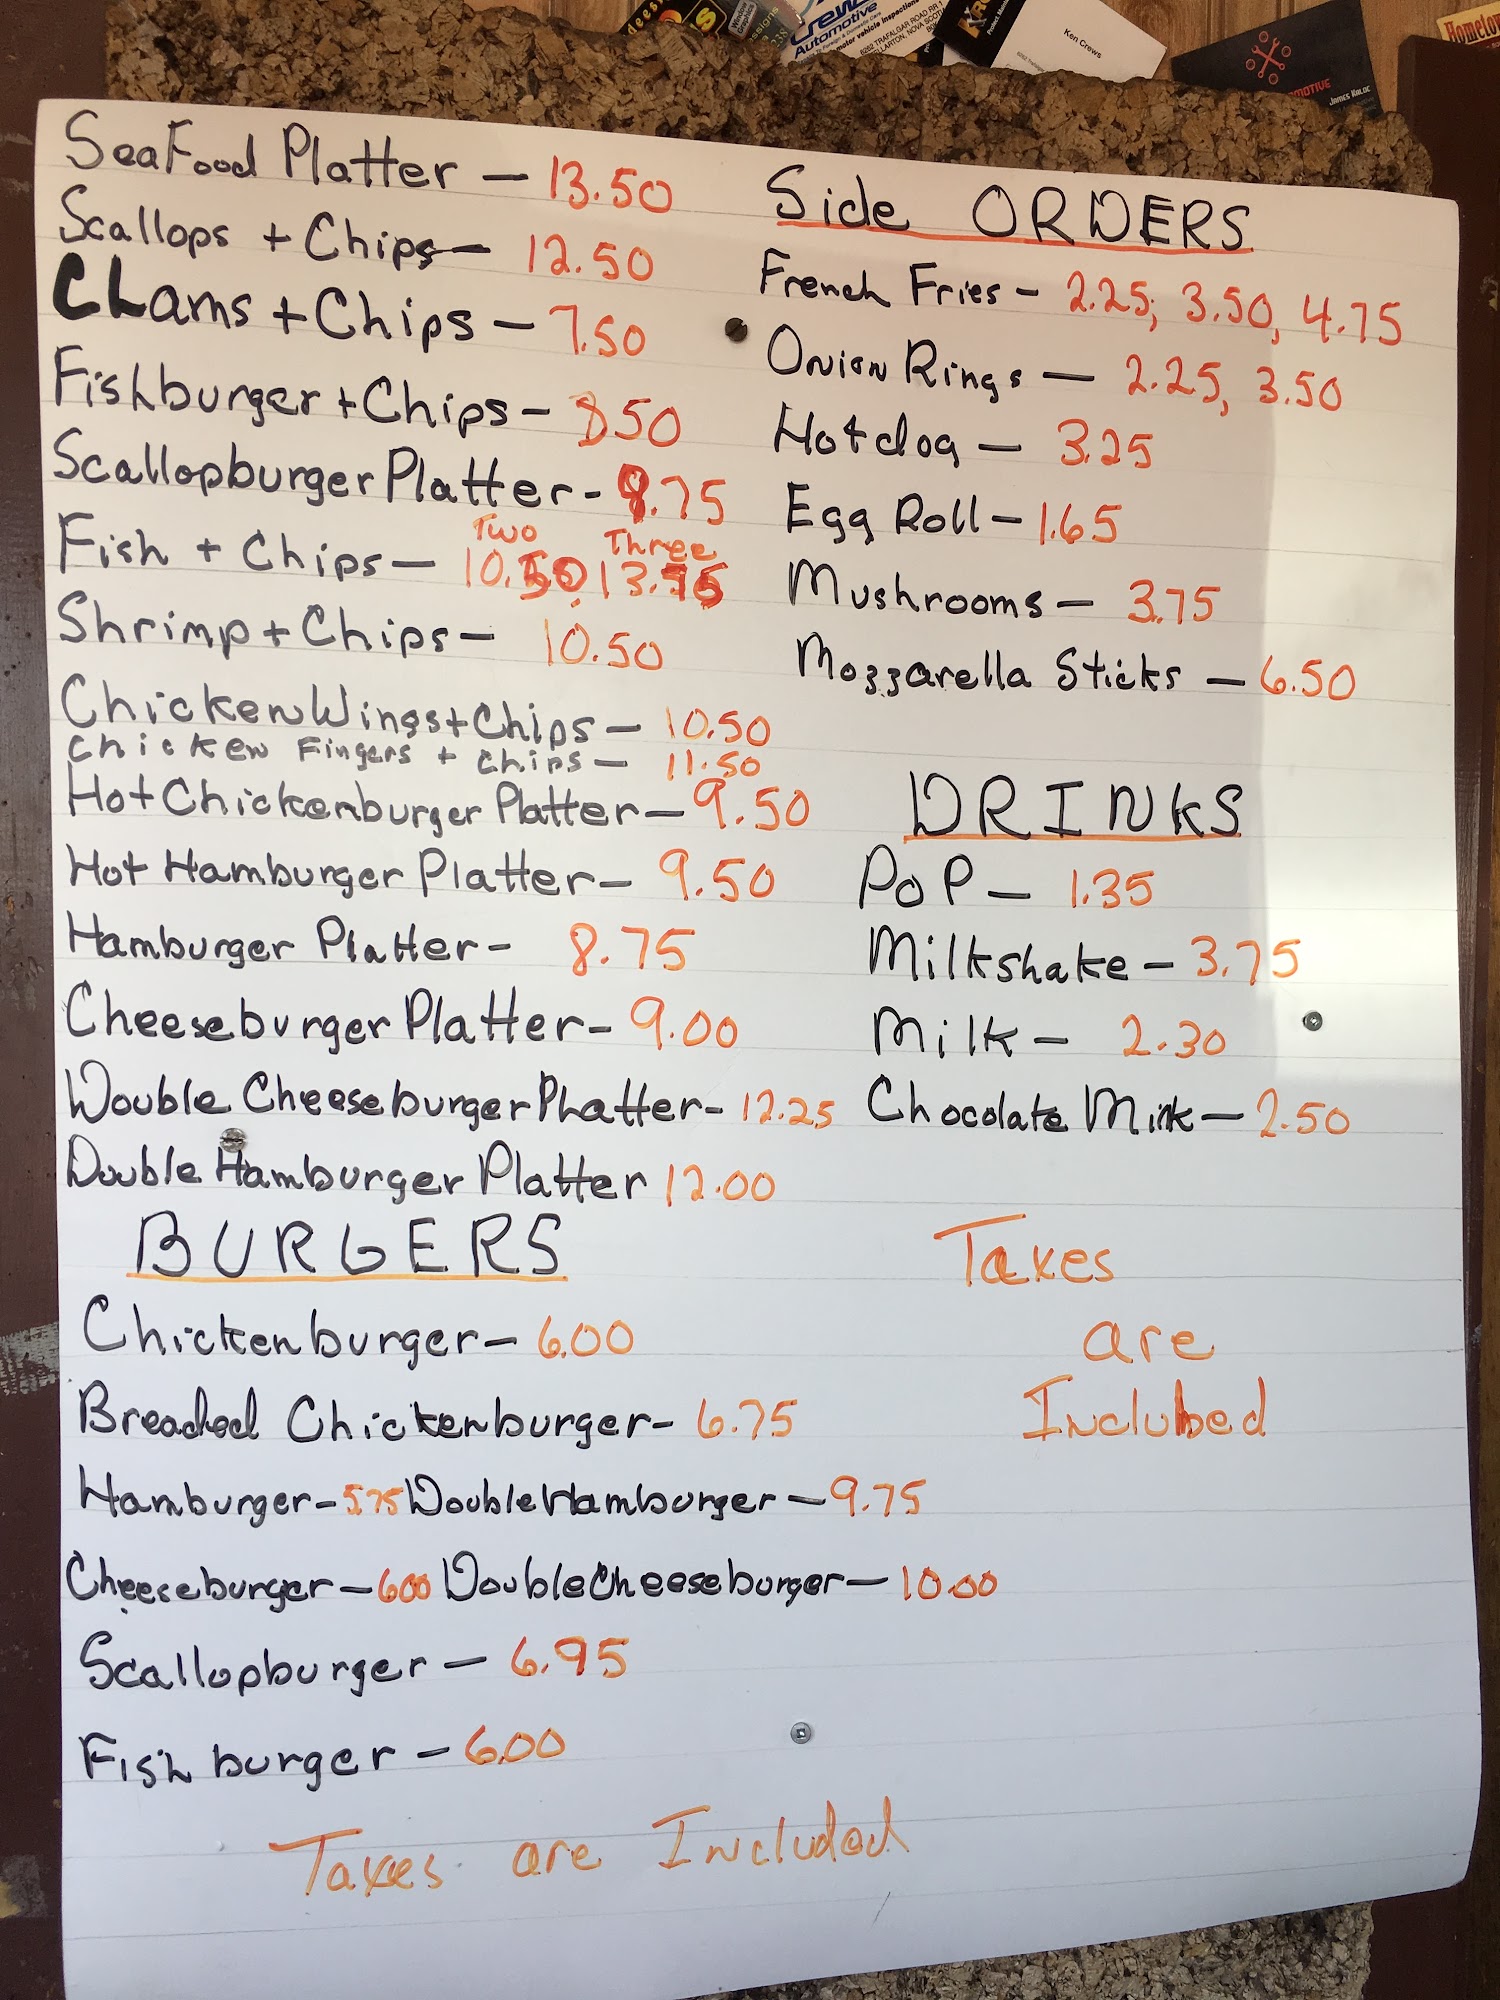 Crews
Automotive
motor vehicle inspections
6262 TRAFALGAR ROAD RR 1
Ken Crews
JAMES KOLOC
SeaFood Platter — 13.50
Scallops + Chips — 12.50
CLams + Chips — 7.50
Fishburger + Chips — 850
Scallopburger Platter - 9.75
Two Three
Fish + Chips — 10.50, 13.75
Shrimp + Chips — 10.50
Chicken Wings + Chips — 10.50
Chicken Fingers + Chips — 11.50
Hot Chickenburger Platter — 9.50
Hot Hamburger Platter — 9.50
Hamburger Platter - 8.75
Cheeseburger Platter - 9.00
Double Cheeseburger Platter - 12.25
Double Hamburger Platter 12.00
BURGERS
Chickenburger — 6.00
Breaded Chickenburger - 6.75
Hamburger - 5.75 Double Hamburger — 9.75
Cheeseburger — 600 Double Cheeseburger — 10.00
Scallopburger — 6.95
Fish burger — 6.00
Taxes are Included
Side ORDERS
French Fries - 2.25, 3.50, 4.75
Onion Rings — 2.25, 3.50
Hotdog — 3.25
Egg Roll — 1.65
Mushrooms — 3.75
Mozzarella Sticks — 6.50
DRINKS
PoP — 1.35
Milkshake — 3.75
Milk — 2.30
Chocolate Milk — 2.50
Taxes
are
Included